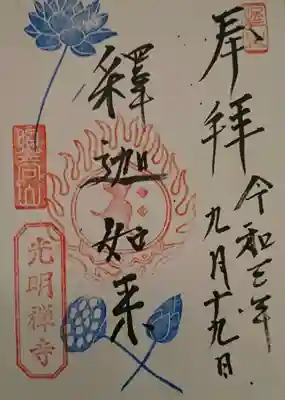 奉拝
令和三年
九月十九日
釋迦如来
光明禅寺